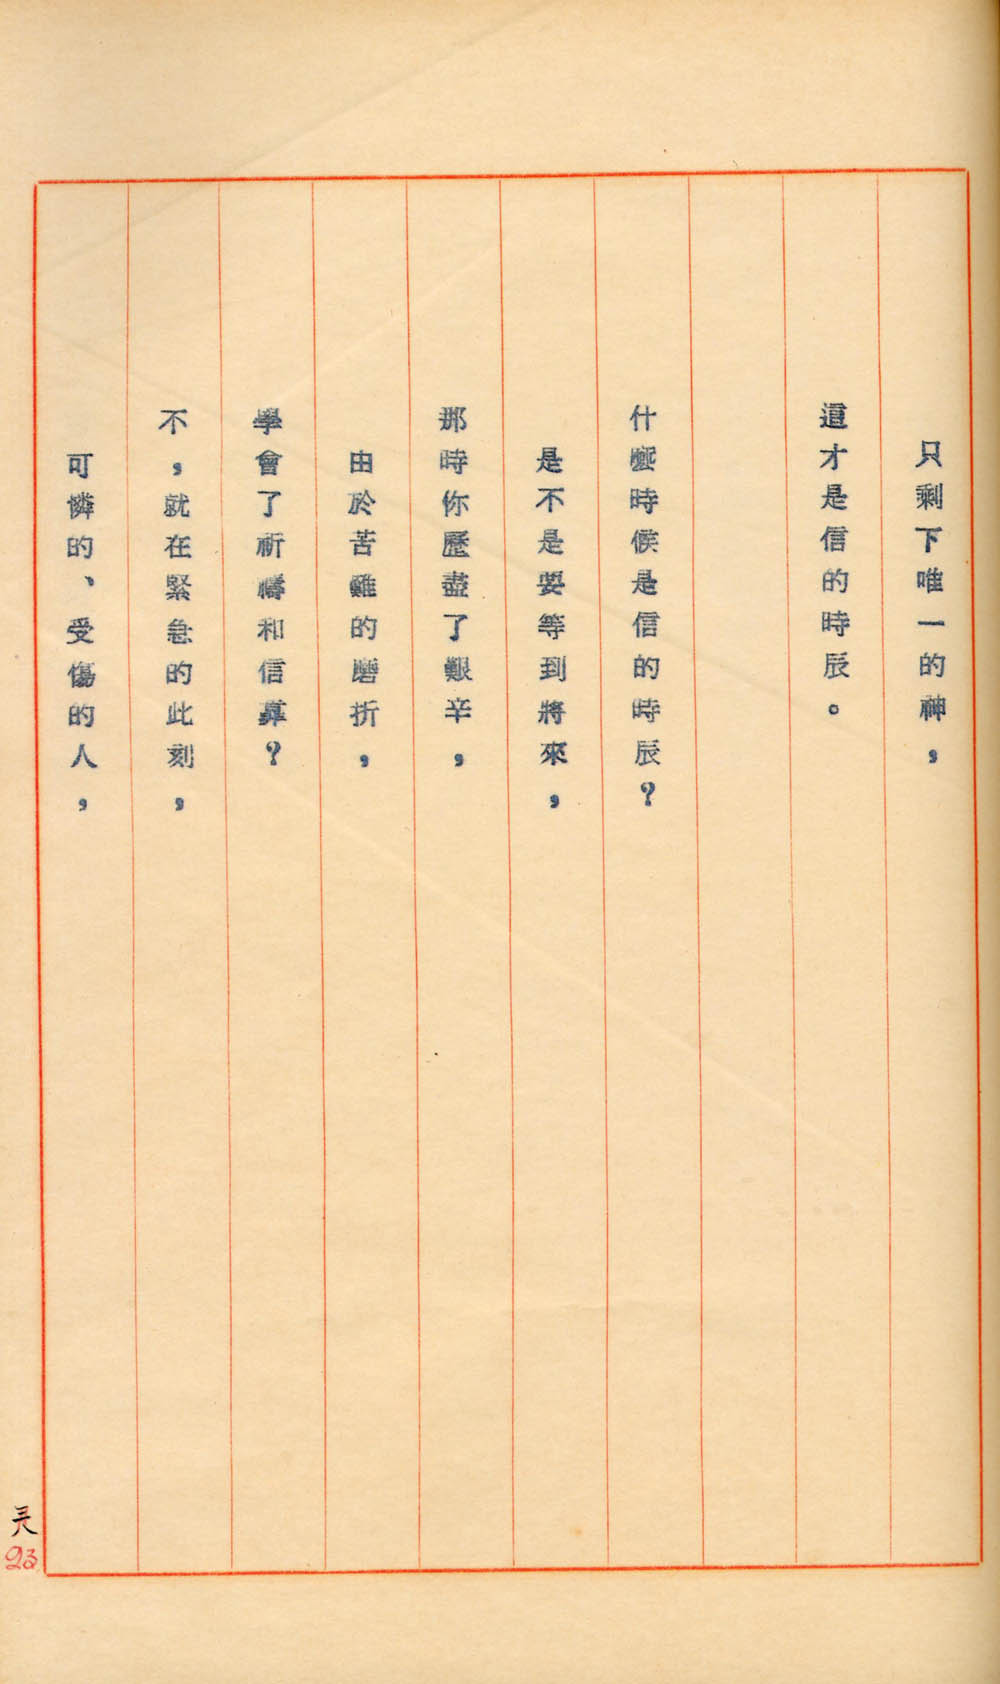 只剩下唯一的神，
這才是信的時辰。
什麼時候是信的時辰？
是不是要等到將來，
那時你歷盡了艱辛，
由於苦難的磨折，
學會了祈禱和信靠？
不，就在緊急的此刻，
可憐的、受傷的人，
23